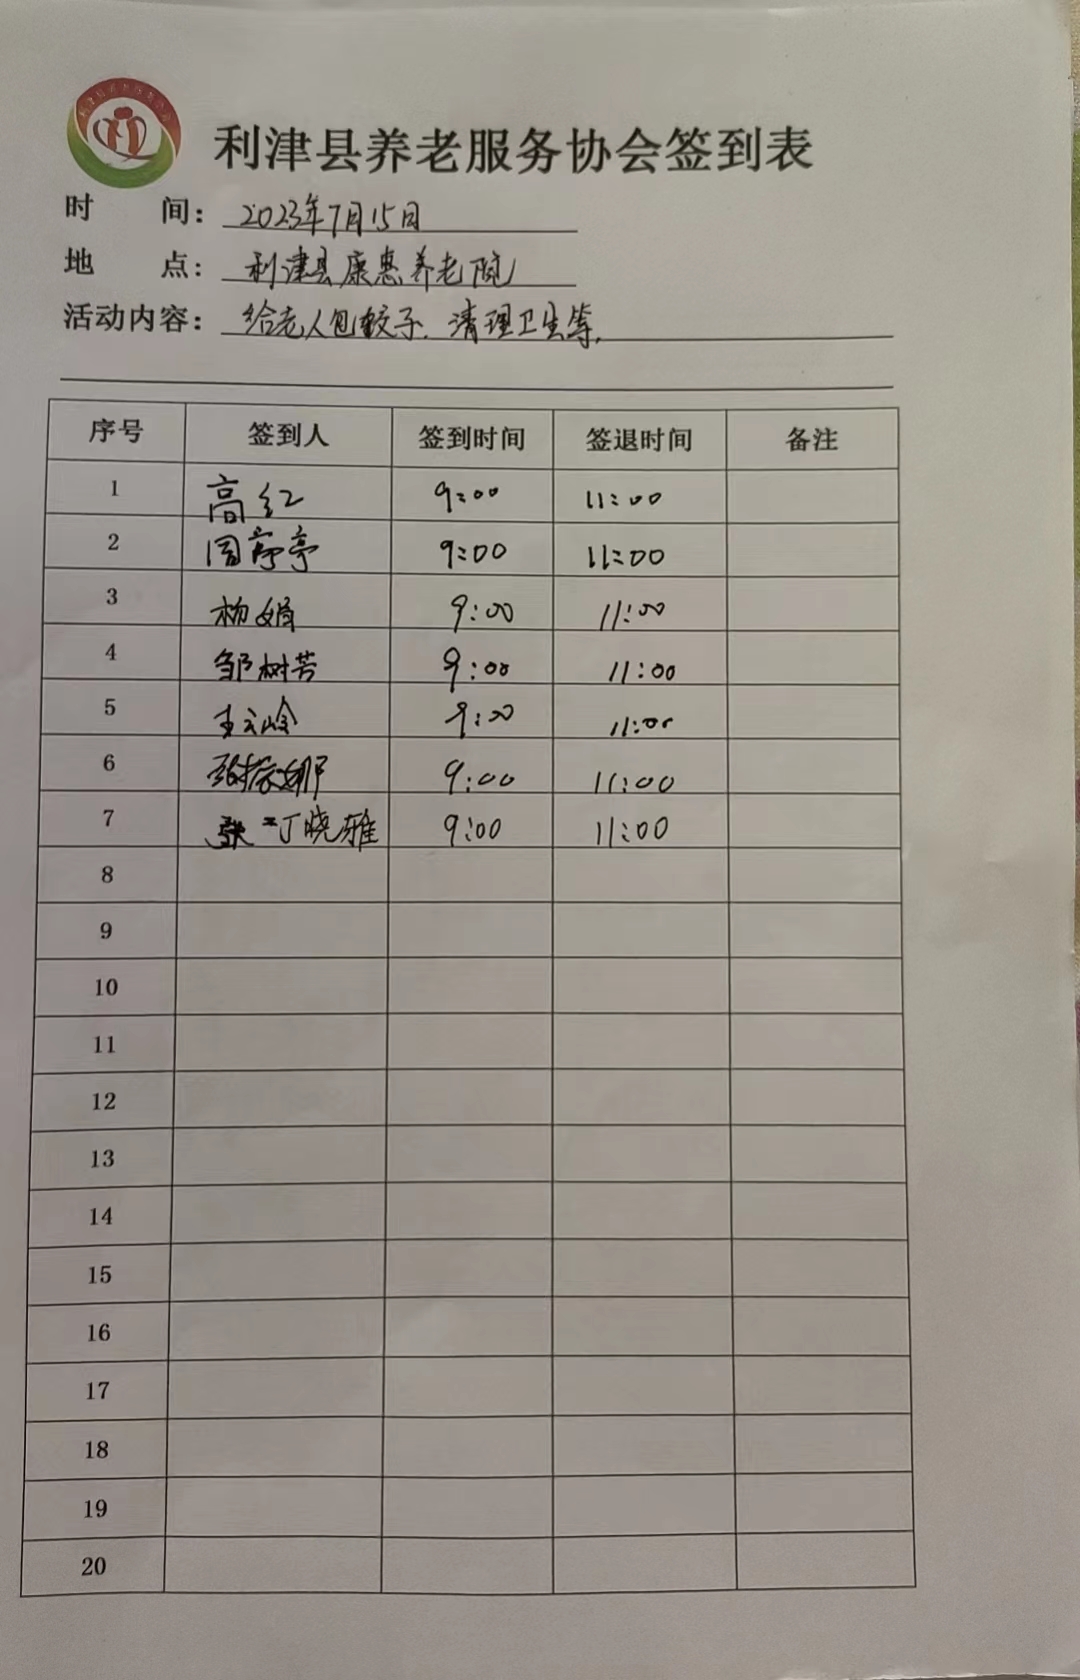 利津县养老服务协会签到表
时 间: 2023年7月15日
地 点: 利津县康惠养老院
活动内容: 给老人包饺子.清理卫生等.
序号 签到人 签到时间 签退时间 备注
1 高红 9:00 11:00
2 9:00 11:00
3 杨娟 9:00 11:00
4 邹树芳 9:00 11:00
5 王云岭 9:00 11:00
6 9:00 11:00
7 丁晓雅 9:00 11:00
8
9
10
11
12
13
14
15
16
17
18
19
20